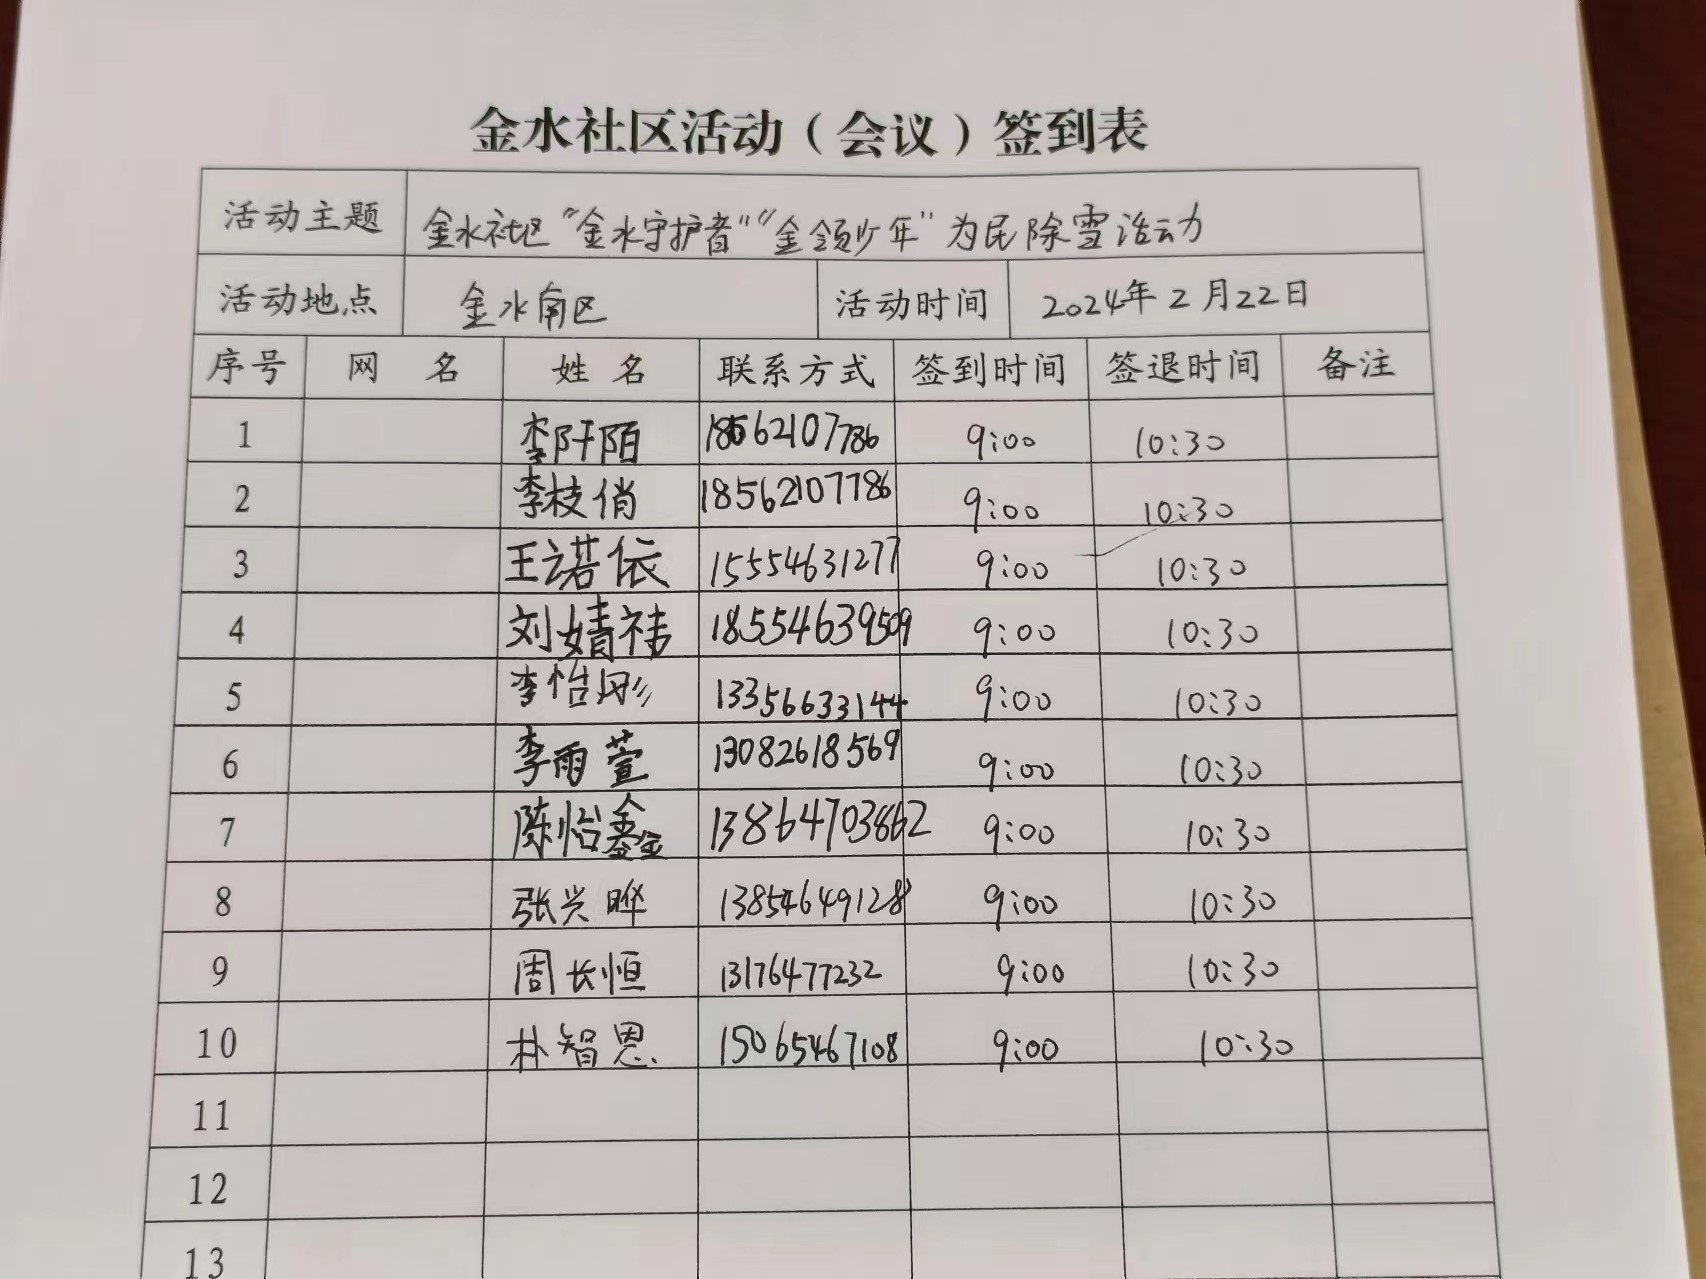 金水社区活动（会议）签到表
活动主题 金水社区“金水守护者”“金领少年”为民除雪活动
活动地点 金水南区 活动时间 2024年2月22日
序号 网 名 姓 名 联系方式 签到时间 签退时间 备注
1 李阡陌 18562107786 9:00 10:30
2 李枝俏 18562107786 9:00 10:30
3 王诺依 15554631277 9:00 10:30
4 刘婧祎 18554639509 9:00 10:30
5 李怡彤 13356633144 9:00 10:30
6 李雨萱 13082618569 9:00 10:30
7 陈怡鑫 13864703862 9:00 10:30
8 张兴晔 13854649128 9:00 10:30
9 周长恒 13176477232 9:00 10:30
10 朴智恩 15065467108 9:00 10:30
11
12
13